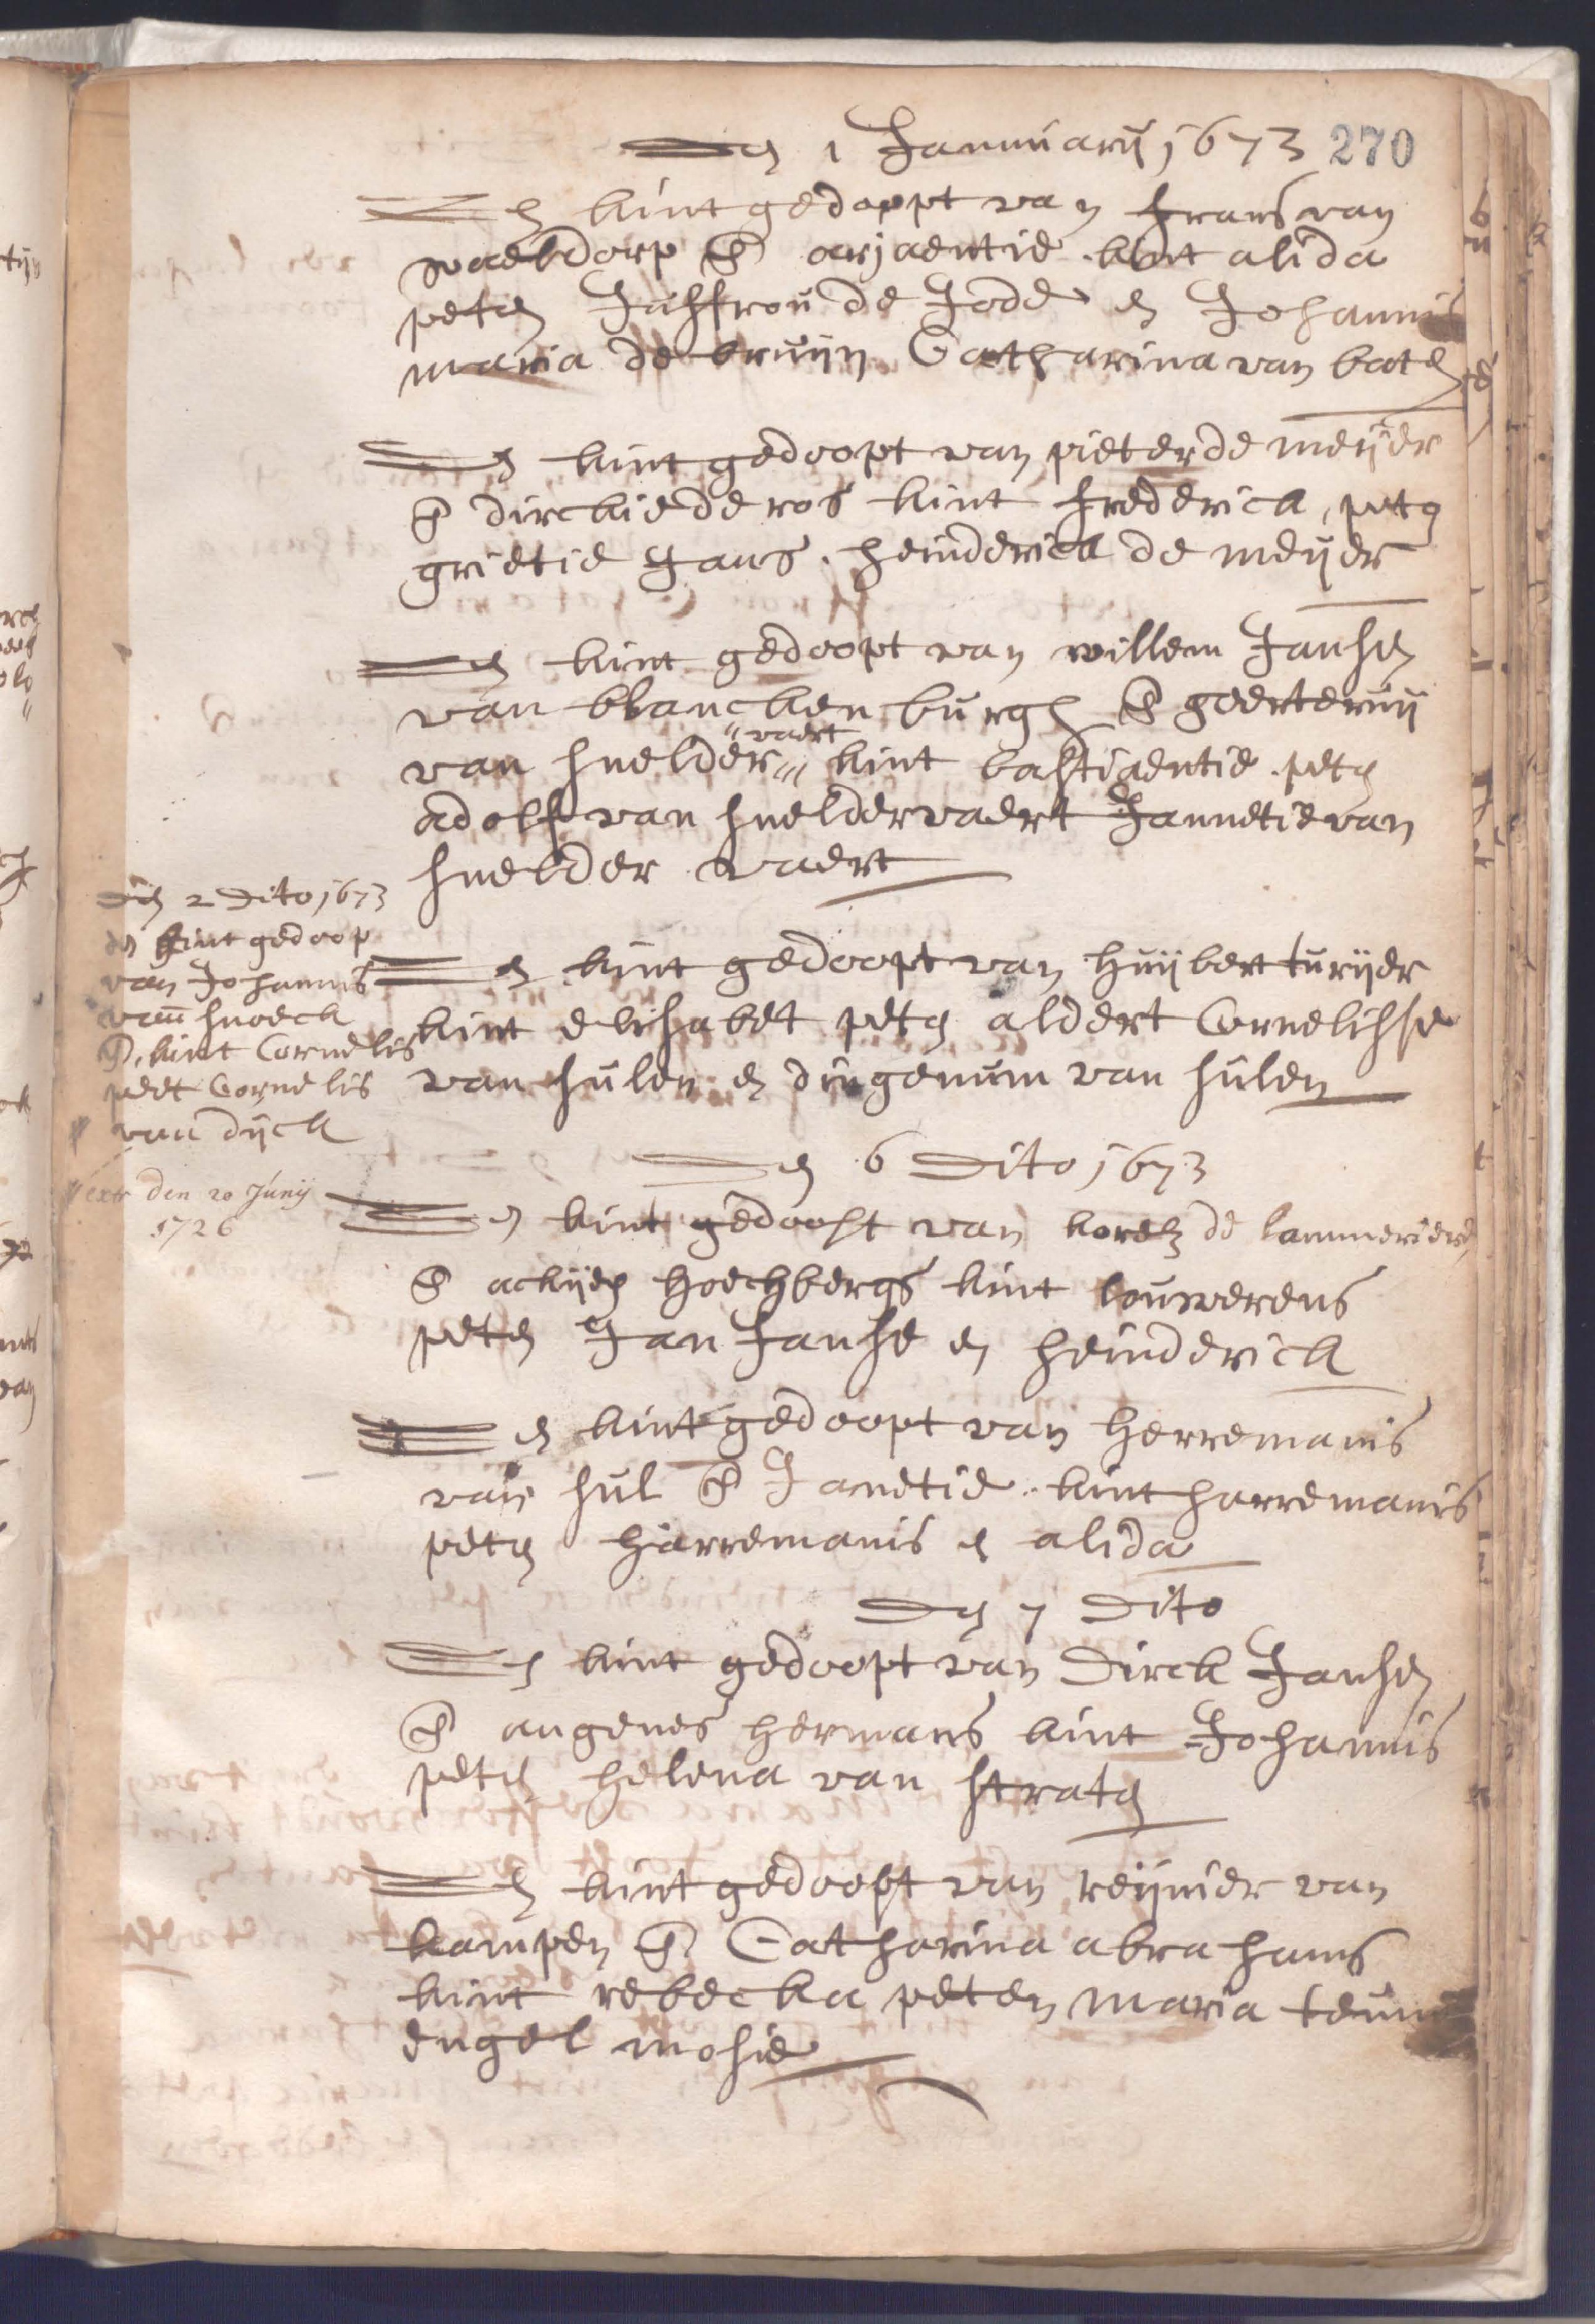 Den 1 Januuarij 1673 270
Een kint gedoppt van frans van
waeldorp & arjaentie kint alida
peten Juffrou de Jode en Johannis
maria de bruijn Catharina van baten
Een kint gedoopt van pieter de meijer
& dirckie de ros kint frederick, peten
grietie Jans. heinderick de meijer
Een kint gedoopt van willem Jansen
van blanckenburgh & geerteruij
van snelder vaert kint bastiaentie. peten
adolf van sneldervaert Jannetie van
snelder vaert
Den 2 dito 1673
en kint gedoop
van Johannis
van snoeck
& kint Cornelis
peet Cornelis
van dijck
extr den 20 Junij
1726
Een kint gedoopt van huijbert turijer
kint elisabet peten aldert Cornelisse
van hulen en dingenum van hulen
Den 6 dito 1673
Een kint gedoost van korels de lammeriere
& ackijen hoechbergs kint louwerens
peten Jan Janse en heinderick
Een kint gedoopt van herremanis
van hul & Janetie kint harremanis
peten harremanis en alida
Den 7 dito
Een kint gedoopt van dirck Jansen
& angenes hermans kint Johannis
peten helena van straten
Een kint gedoopt van reijnier van
kampen & Catharina abrahams
kint rebecka peten maria teun
engel mosie